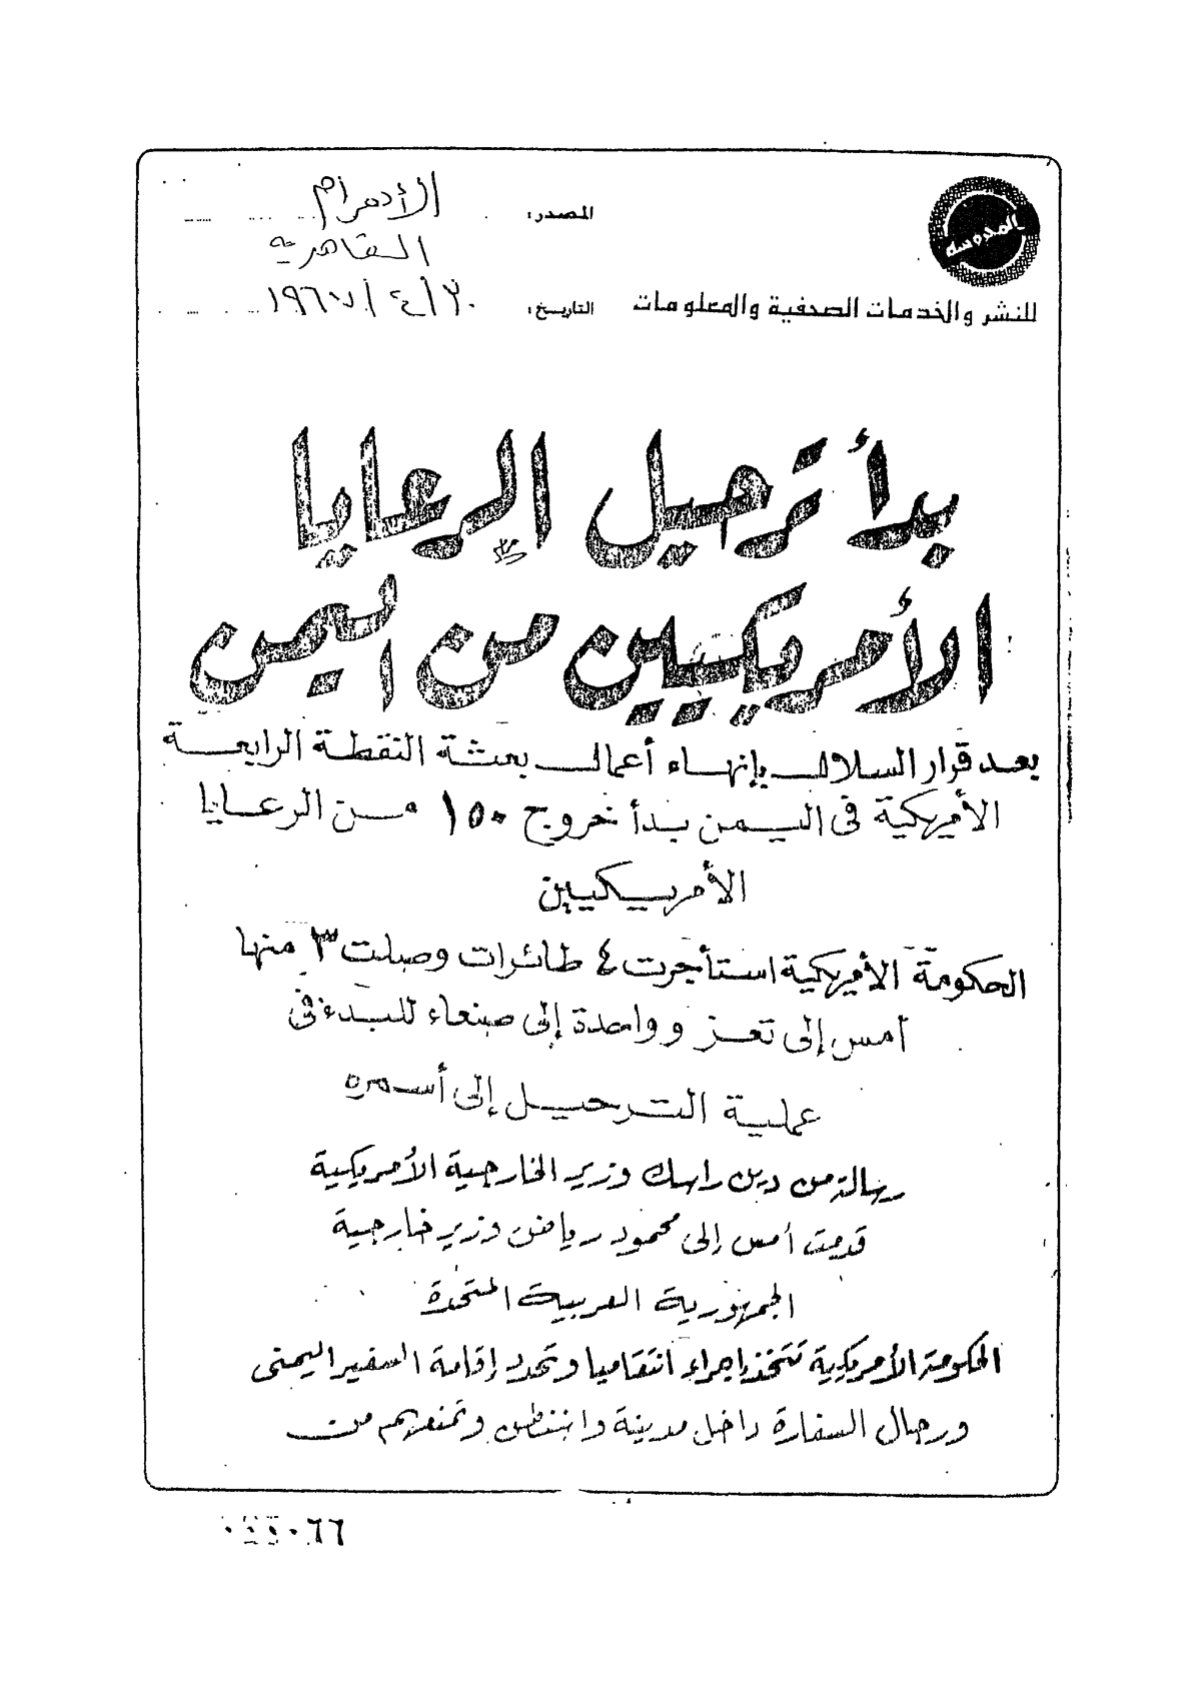 المدوسة
للنشر والخدمات الصحفية والمعلومات
المصدر: الأهرام
القاهرية
التاريخ: ٣٠/٤/١٩٦٧
بدأ ترحيل الرعايا
الأمريكيين من اليمن
بعد قرار السلال بإنهاء أعمال بعثة النقطة الرابعة
الأمريكية فى اليمن بدأ خروج ١٥٠ من الرعايا
الأمريكيين
الحكومة الأمريكية استأجرت ٤ طائرات وصلت ٣ منها
أمس إلى تعز وواحدة إلى صنعاء للبدء فى
عملية الترحيل إلى أسمره
رسالة من دين راسك وزير الخارجية الأمريكية
قدمت أمس إلى محمود رياض وزير خارجية
الجمهورية العربية المتحدة
الحكومة الأمريكية تتخذ إجراء انتقاميا وتحدد إقامة السفير اليمنى
ورجال السفارة داخل مدينة واشنطن وتمنعهم من